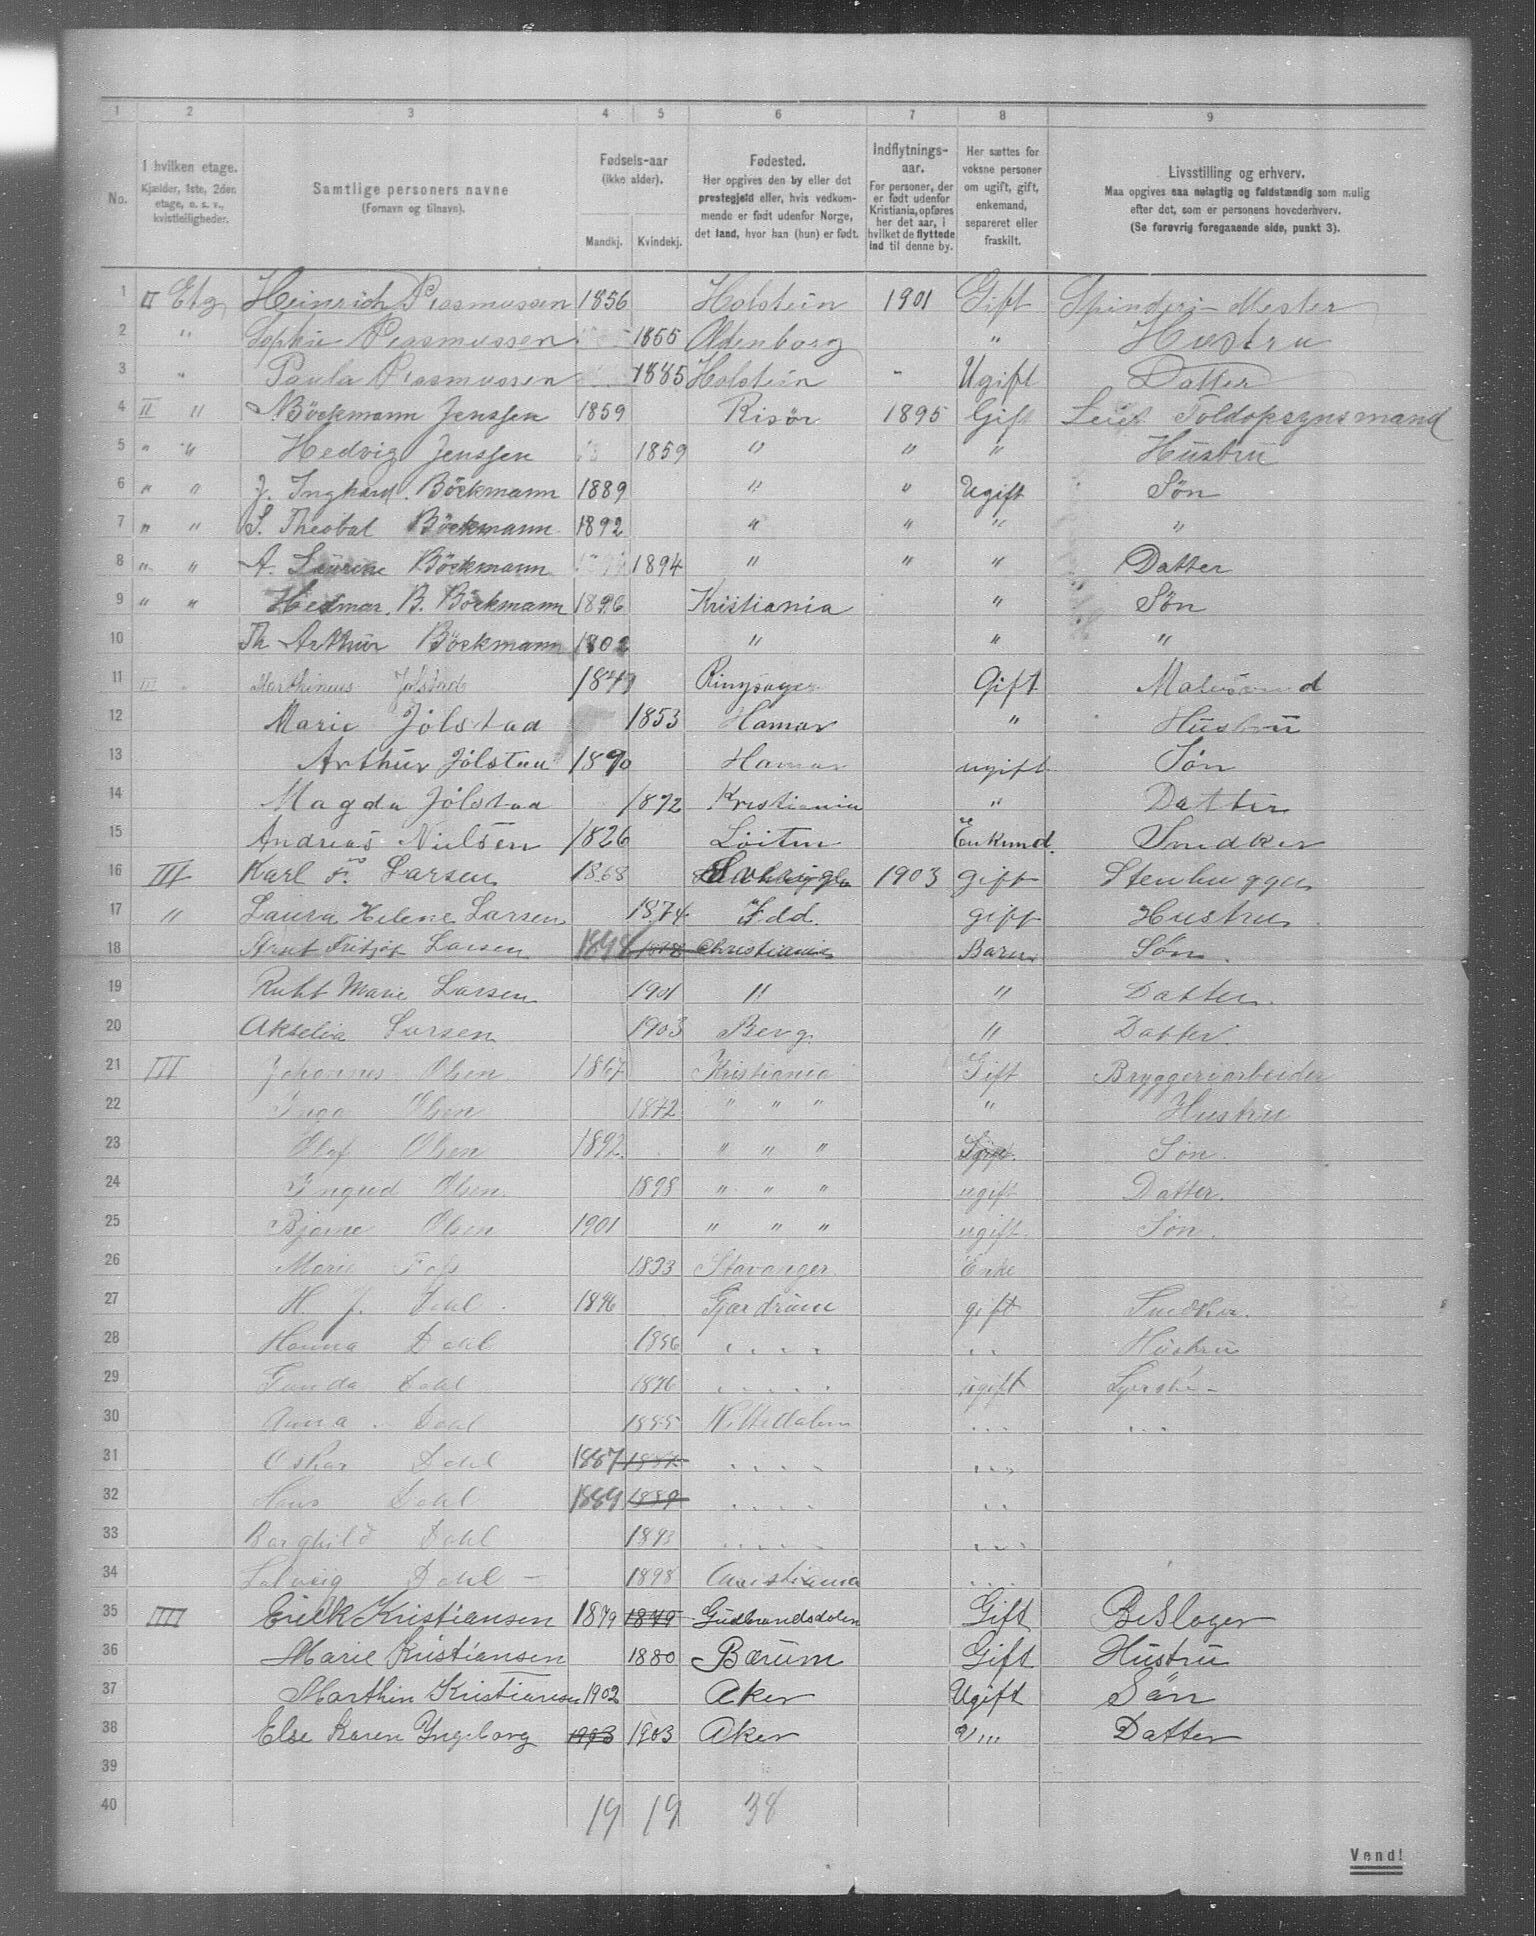 1 2 3 4 5 6 7 8 9
No.
I hvilken etage.
Kjælder, 1ste, 2den etage, o. s. v., kvistleiligheder.
Samtlige personers navne
(Fornavn og tilnavn).
Fødsels-aar
(ikke alder).
Mandkj. Kvindekj.
Fødested.
Her opgives den by eller det prestegjeld eller, hvis vedkommende er født udenfor Norge, det land, hvor han (hun) er født.
Indflytnings-aar.
For personer, der er født udenfor Kristiania, opføres her det aar, i hvilket de flyttede ind til denne by.
Her sættes for voksne personer om ugift, gift, enkemand, separeret eller fraskilt.
Livsstilling og erhverv.
Maa opgives saa nøiagtig og fuldstændig som mulig efter det, som er personens hovederhverv.
(Se forøvrig foregaaende side, punkt 3).
1 II Etg Heinrich Rasmussen 1856 Holstein 1901 Gift Spinderi-Mester
2 " Sophie Rasmussen 1855 Oldenborg " Hustru
3 " Paula Rasmussen 1885 Holstein " Ugift Datter
4 II " Böckmann Jenssen 1859 Risör 1895 Gift Toldopsynsmand
5 " " Hedvig Jenssen 1859 " " " Hustru
6 " " J. Böckmann 1889 " " Ugift Søn
7 " " S. Theobal Böckmann 1892 " " " "
8 " " A. Laurine Böckmann 1894 " " " Datter
9 " " B. Böckmann 1896 Kristiania " Søn
10 Th Arthur Böckmann 1902 " " "
11 III Marthinus Jølstad 1849 Ringsager Gift
12 Marie Jølstad 1853 Hamar " Hustru
13 Arthur Jølstad 1890 Hamar ugift Søn
14 Magda Jølstad 1892 Kristiania " Datter
15 Andreas Nielsen 1826 Løiten Enkemd. Snedker
16 III Karl F. Larsen 1868 Sverige 1903 gift Stenhugger
17 " Laura Helene Larsen 1874 Idd. gift Hustru
18 Fritjof Larsen 1898 Christiania Barn Søn.
19 Ruht Marie Larsen 1901 " " Datter.
20 Akselia Larsen 1903 Berg. " Datter.
21 III Johannes Olsen 1867 Kristiania Gift Bryggeriarbeider
22 Inga Olsen 1872 " " " " Hustru
23 Olaf Olsen 1892 " " " Søn.
24 Olsen 1898 " " " ugift Datter.
25 Bjarne Olsen 1901 " " " ugift. Søn.
26 Marie Stavanger. Enke
27 H. J. Dahl. 1846 Gjerdrum gift Snedker.
28 Hanna Dahl " " " " " " Hustru
29 Gunda Dahl 1876 " " " " " ugift Syerske
30 Anna Dahl 1885 Nittedalen " " " " " "
31 Oskar Dahl 1887 " " " " " " "
32 Hans Dahl 1889 1889 " " " " " "
33 Borghild Dahl 1893 " " " " " " "
34 Solveig Dahl 1898 Christiania " " "
35 IIII Erick Kristiansen 1879 1879 Gudbrandsdalen Gift BeSlager
36 Marie Kristiansen 1880 Bærum Gift Hustru
37 Marthin Kristiansen 1902 Aker Ugift Sön
38 Else Karen Yngeborg 1903 1903 Aker U " Datter
39
40 19 19 38
Vend!